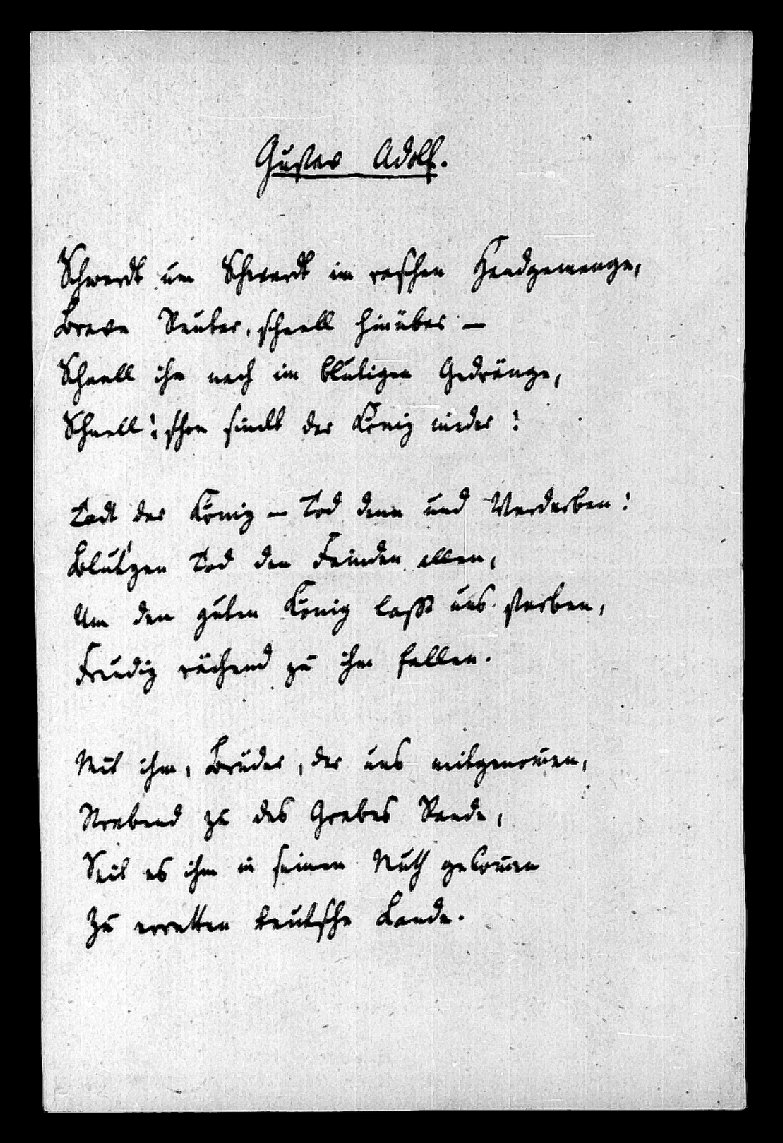 Gustav Adolf.
Schwerdt um Schwerdt im raschen Handgemenge,
Brave Reuter, schnell hinüber —
Schnell ihm nach im blutigen Gedränge,
Schnell! schon sinckt der König nieder!
Todt der König — Tod denn und Verderben!
Blut'gen Tod den Feinden allen,
Um den guten König lasst uns sterben,
Freudig rächend zu ihm fallen.
Mit ihm, Brüder, der uns mitgenommen,
Strebend zu des Grabes Rande,
Seit es ihm in seinen Muth gekommen
Zu erretten teutsche Lande.